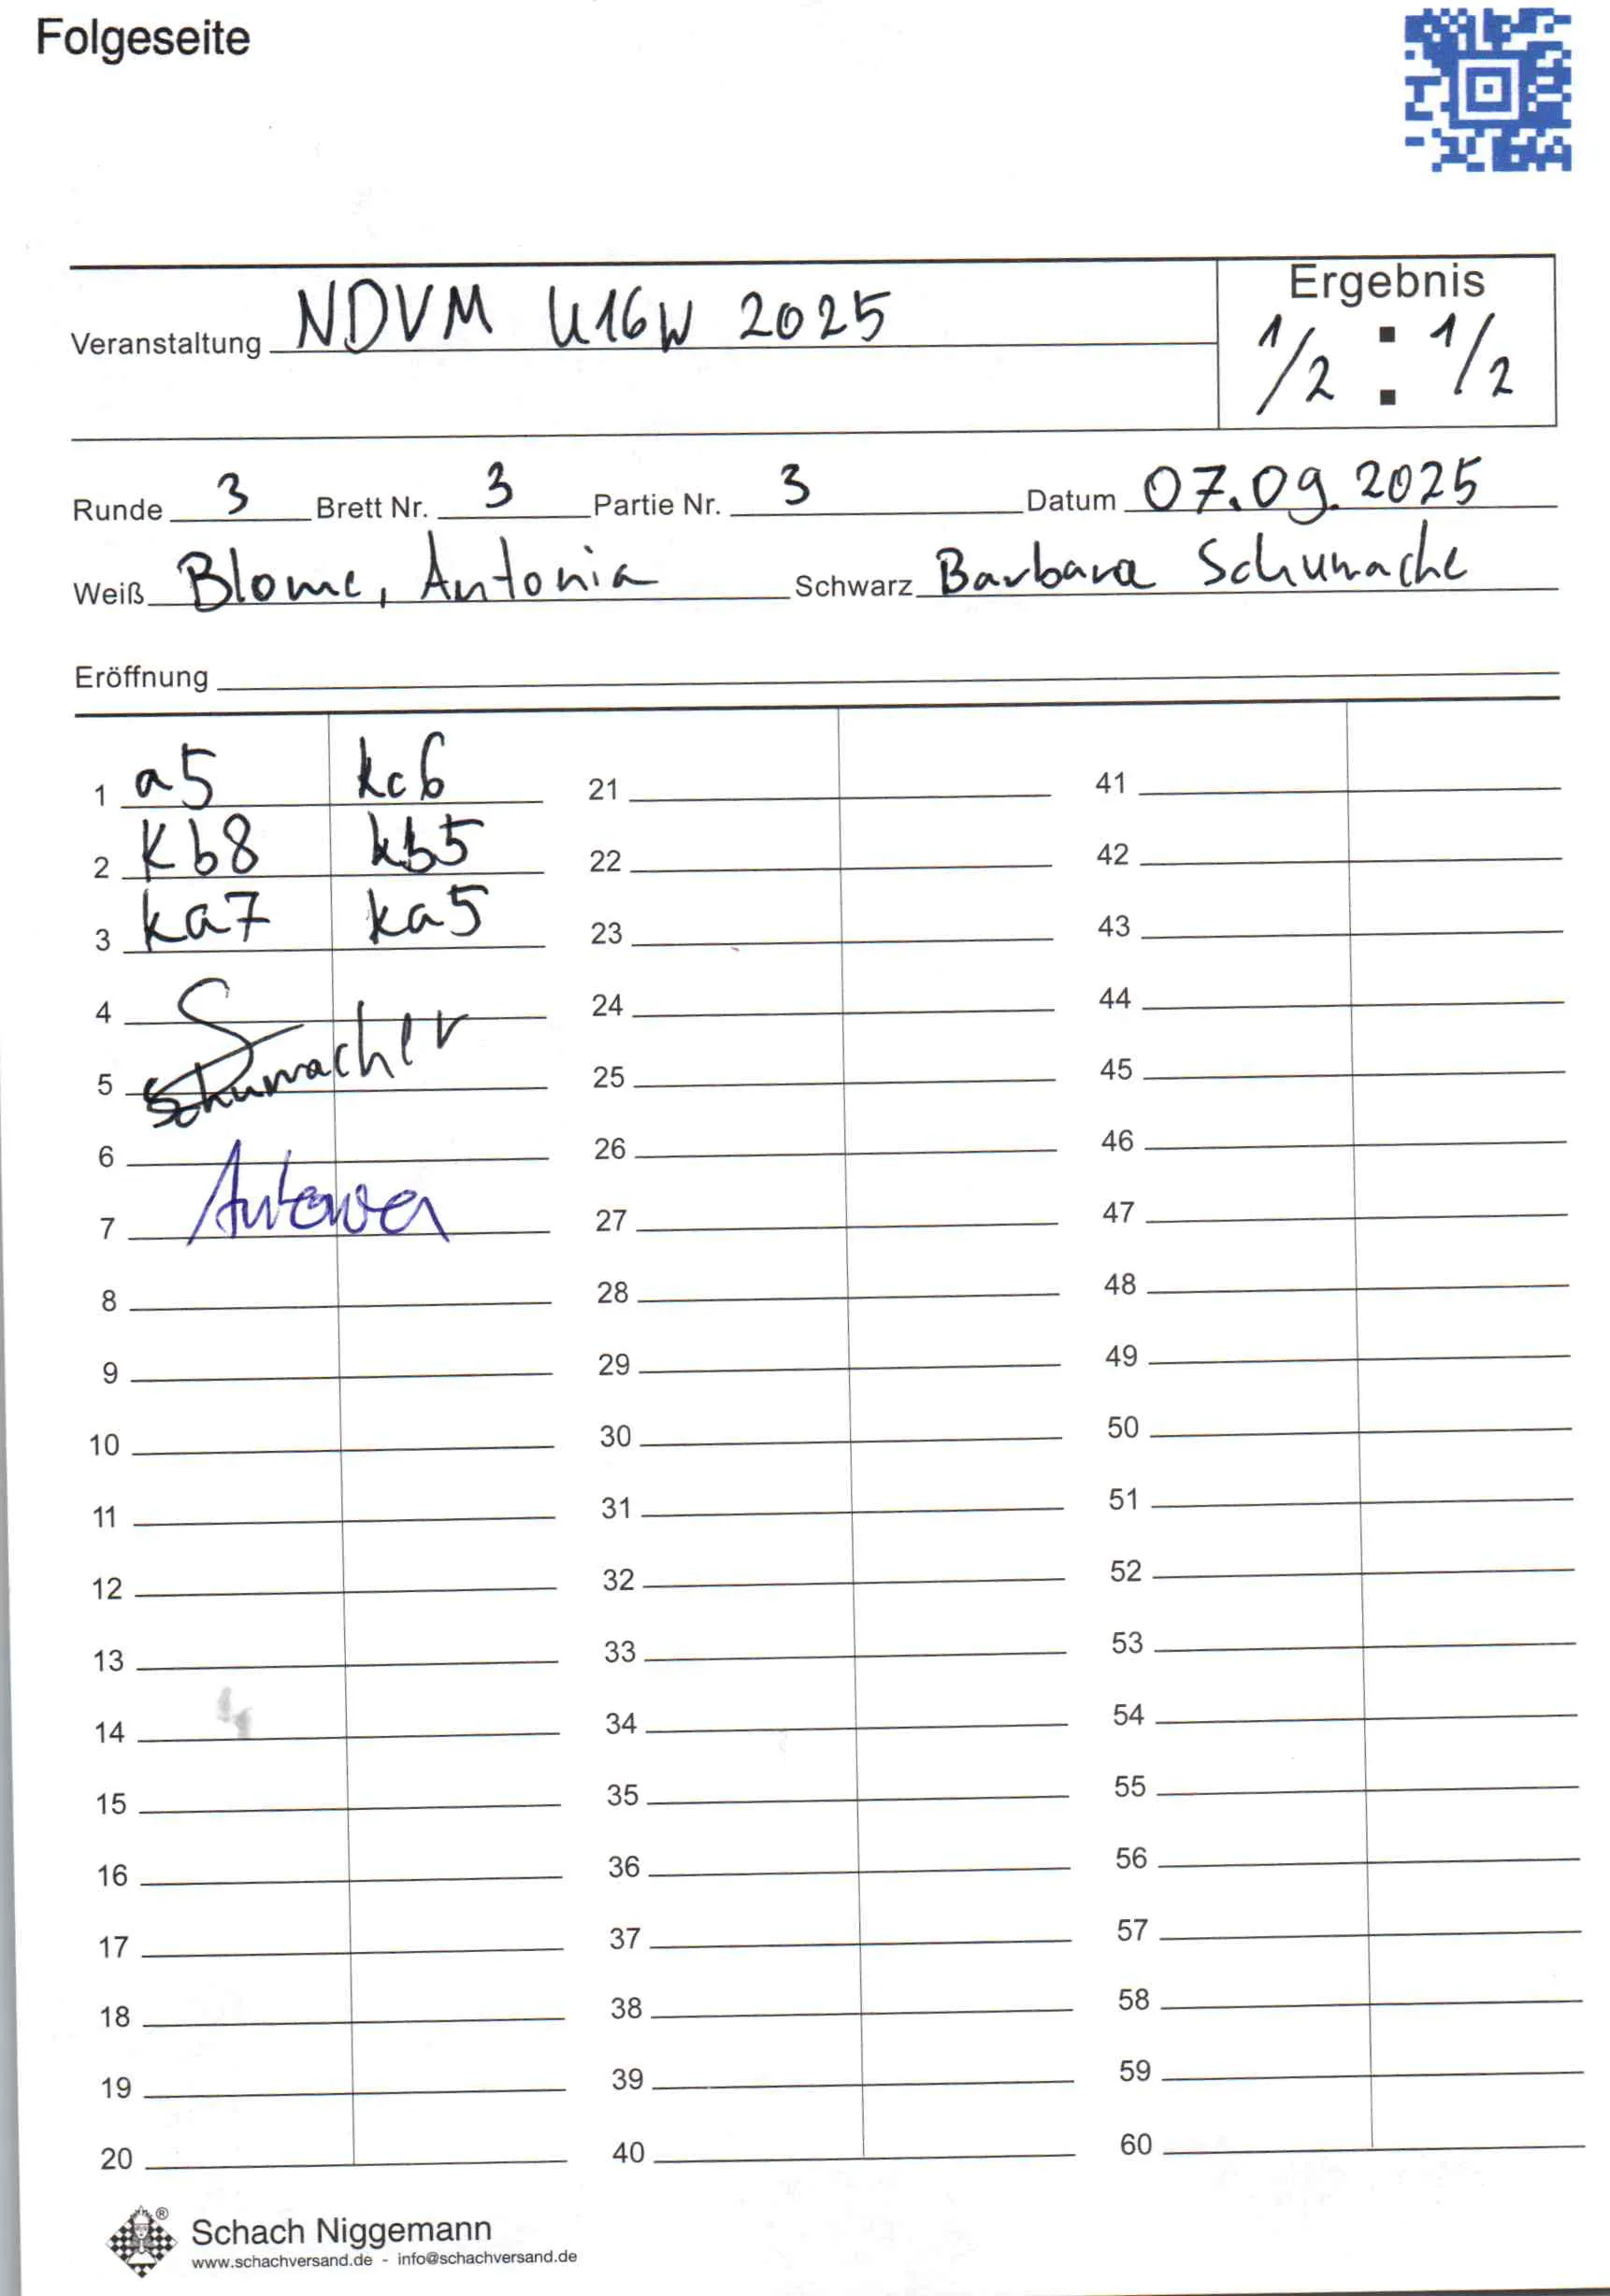 Folgeseite
Ergebnis
Veranstaltung NDVM U16W 2025
1/2 : 1/2
Runde 3 Brett Nr. 3 Partie Nr. 3 Datum 07.09.2025
Weiß Blome, Antonia Schwarz Barbara Schumache
Eröffnung
1 a5 kc6 21 41
2 Kb8 kb5 22 42
3 ka7 ka5 23 43
4 24 44
5 Schumacher 25 45
6 26 46
7 Antonia 27 47
8 28 48
9 29 49
10 30 50
11 31 51
12 32 52
13 33 53
14 34 54
15 35 55
16 36 56
17 37 57
18 38 58
19 39 59
20 40 60
® Schach Niggemann
www.schachversand.de - info@schachversand.de